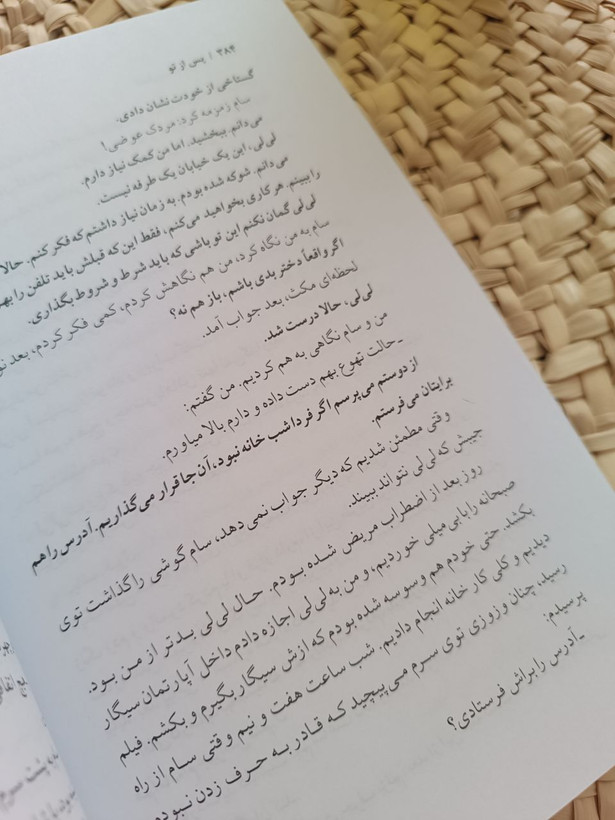 ۳۸۴ / پس از تو
گستاخی از خودت نشان دادی.
سام زمزمه کرد: مردک عوضی!
می‌دانم. ببخشید. اما من کمک نیاز دارم.
لی‌لی، این یک خیابان یک طرفه نیست.
می‌دانم. شوکه شده بودم. به زمان نیاز داشتم که فکر کنم. حالا
را ببینم. هر کاری بخواهید می‌کنم، فقط این که قبلش باید تلفن را
لی‌لی گمان نکنم این تو باشی که باید شرط و شروط بگذاری.
سام به من نگاه کرد، من هم نگاهش کردم، کمی فکر کردم، بعد
اگر واقعاً دختر بدی باشم، باز هم نه؟
لحظه‌ای مکث، بعد جواب آمد.
لی‌لی، حالا درست شد.
من و سام نگاهی به هم کردیم. من گفتم:
ـ حالت تهوع بهم دست داده و دارم بالا میاورم.
از دوستم می‌پرسم اگر فردا شب خانه نبود، آن جا قرار می‌گذاریم. آدرس را هم
برایتان می‌فرستم.
وقتی مطمئن شدیم که دیگر جواب نمی‌دهد، سام گوشی را گذاشت توی
جیبش که لی‌لی نتواند ببیند.
روز بعد از اضطراب مریض شده بودم. حال لی‌لی بدتر از من بود.
صبحانه را با بی‌میلی خوردیم، و من به لی‌لی اجازه دادم داخل آپارتمان سیگار
بکشد. حتی خودم هم وسوسه شده بودم که ازش سیگار بگیرم و بکشم. فیلم
دیدیم و کلی کار خانه انجام دادیم. شب ساعت هفت و نیم وقتی سام از راه
رسید، چنان وزوزی توی سرم می‌پیچید که قادر به حرف زدن نبودم
پرسیدم:
ـ آدرس را براش فرستادی؟
پشت سرم